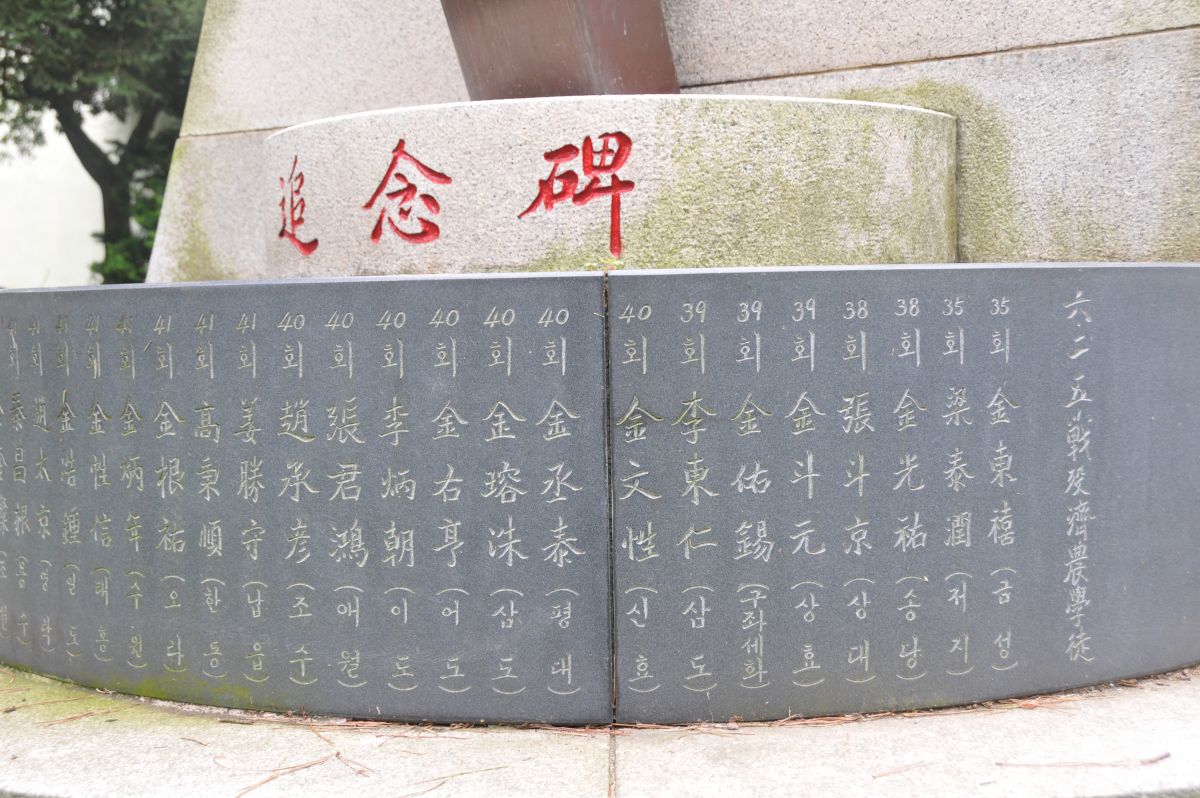 追念碑
六·二五戰歿濟農學徒
35회 金東禧 (금성)
35회 梁泰潤 (저지)
38회 金光祐 (송당)
38회 張斗京 (상대)
39회 金斗元 (상효)
39회 金佑錫 (구좌세화)
39회 李東仁 (삼도)
40회 金文性 (신효)
40회 金丞泰 (평대)
40회 金瑢洙 (삼도)
40회 金右亨 (어도)
40회 李炳朝 (이도)
40회 張君鴻 (애월)
40회 趙承彦 (조수)
41회 姜勝守 (납읍)
41회 高秉順 (한동)
41회 金根祐 (오라)
41회 金炳年 (수원)
41회 金性信 (대흥)
41회 金浩鍾 (일도)
41회 趙太京 (영락)
41회 秦昌根 (용수)